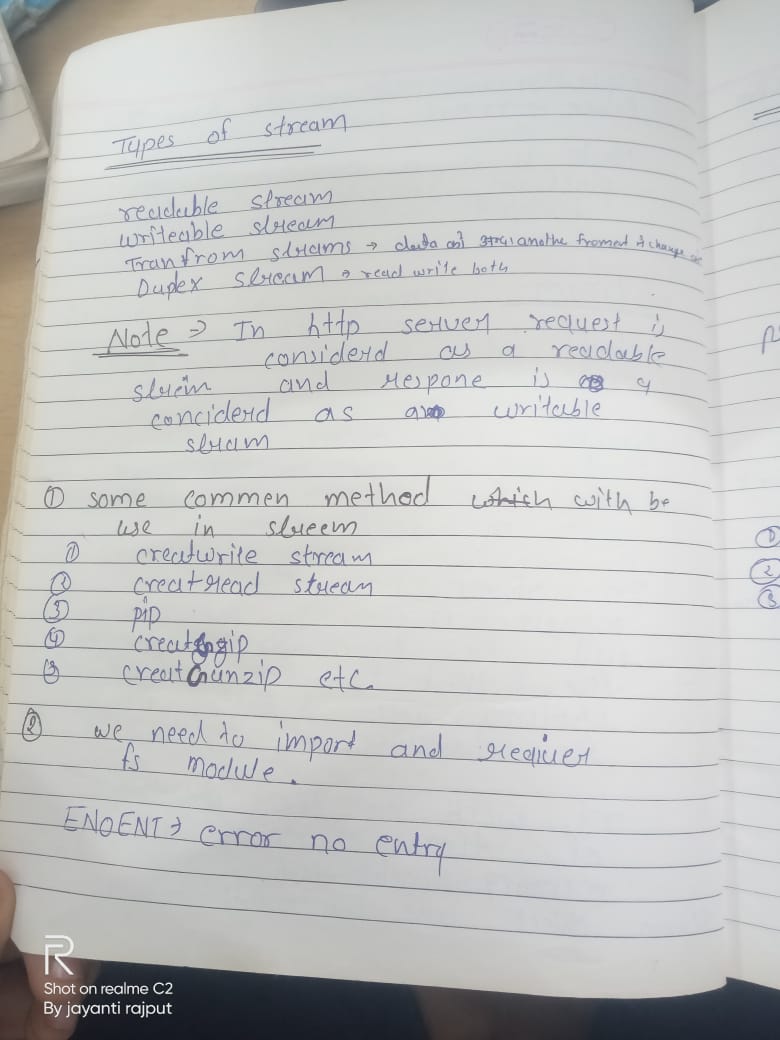 Types of stream
readable stream
writeable stream
Tranfrom streams → data one
Duplex stream → read write both
Note → In http server request is
considerd as a readable
strein and respone is a
conciderd as a writable
stram
① some commen method which with be
use in streem
① creatwrite stream
② creatread stream
③ pip
④ creatgzip
⑤ creatGunzip etc.
② we need to import and requier
fs module.
ENOENT → error no entry
R
Shot on realme C2
By jayanti rajput
①
②
③